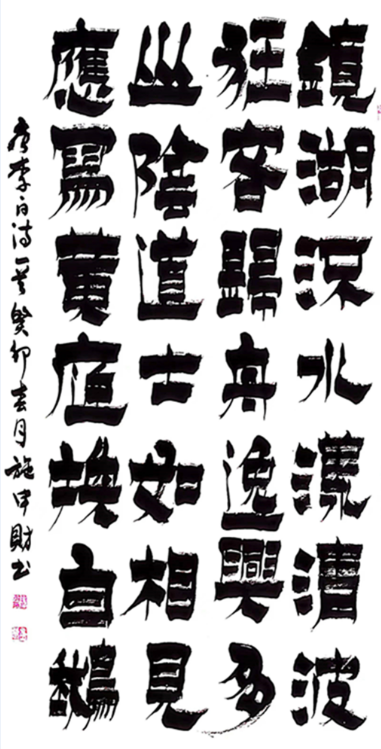 鏡湖流水漾清波
狂客歸舟逸興多
山陰道士如相見
應寫黃庭換白鵝
唐李白诗一首癸卯春月施中財书